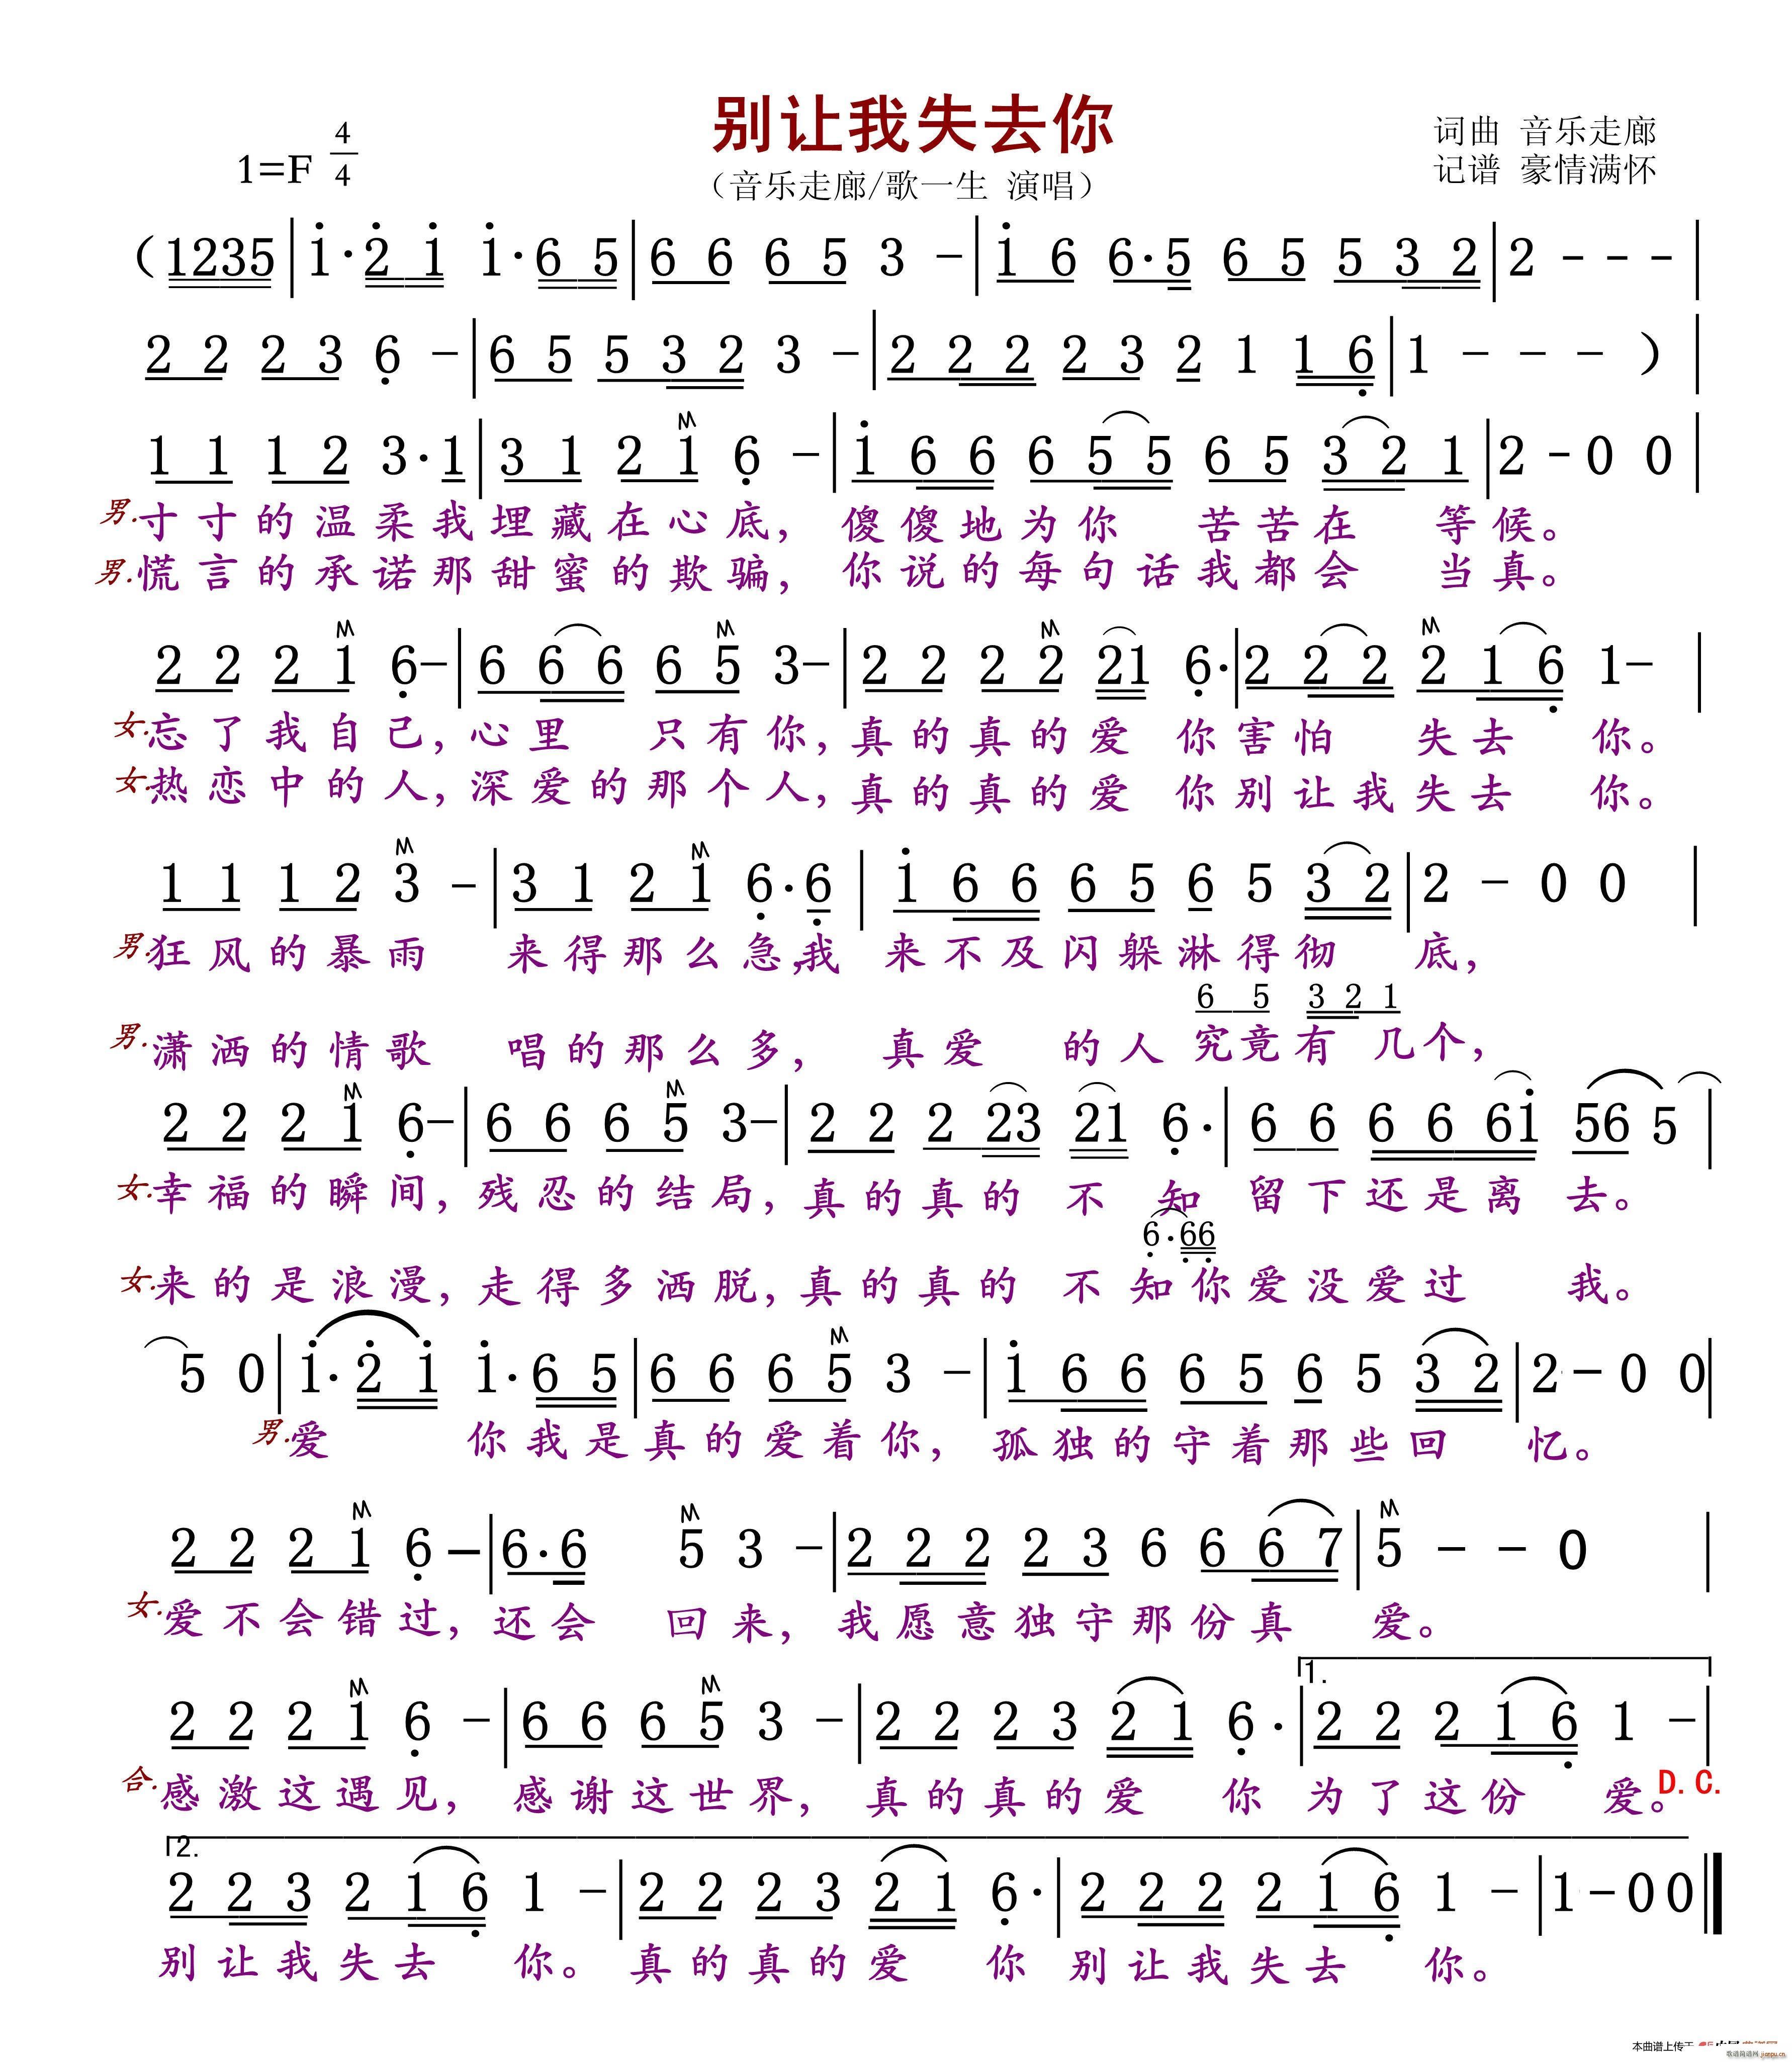 别让我失去你
1=F 4/4
词曲 音乐走廊
(音乐走廊/歌一生 演唱)
记谱 豪情满怀
(1235|i·2 i i·6 5|6 6 6 5 3 -|i 6 6·5 6 5 5 3 2|2 - - -|
2 2 2 3 6 -|6 5 5 3 2 3 -|2 2 2 2 3 2 1 1 6|1 - - - )|
1 1 1 2 3·1|3 1 2 1 6 -|i 6 6 6 5 5 6 5 3 2 1|2 - 0 0|
男.寸寸的温柔我埋藏在心底，傻傻地为你 苦苦在 等候。
男.慌言的承诺那甜蜜的欺骗，你说的每句话我都会 当真。
2 2 2 1 6-|6 6 6 6 5 3-|2 2 2 2 21 6·|2 2 2 2 1 6 1-|
女.忘了我自己，心里 只有你，真的真的爱 你害怕 失去 你。
女.热恋中的人，深爱的那个人，真的真的爱 你别让我失去 你。
1 1 1 2 3 -|3 1 2 1 6·6|i 6 6 6 5 6 5 3 2|2 - 0 0|
男.狂风的暴雨 来得那么急，我 来不及闪躲淋得彻 底，
6 5 3 2 1
男.潇洒的情歌 唱的那么多， 真爱 的人 究竟有 几个，
2 2 2 1 6-|6 6 6 5 3-|2 2 2 23 21 6·|6 6 6 6 6i 56 5|
女.幸福的瞬间，残忍的结局，真的真的 不 知 留下还是离 去。
6·66
女.来的是浪漫，走得多洒脱，真的真的 不 知你爱没爱过 我。
5 0|i·2 i i·6 5|6 6 6 5 3 -|i 6 6 6 5 6 5 3 2|2 - 0 0|
男.爱 你我是真的爱着你， 孤独的守着那些回 忆。
2 2 2 1 6 -|6·6 5 3 -|2 2 2 2 3 6 6 6 7|5 - - 0|
女.爱不会错过，还会 回来，我愿意独守那份真 爱。
1.
2 2 2 1 6 -|6 6 6 5 3 -|2 2 2 3 2 1 6·|2 2 2 1 6 1 -|
合.感激这遇见， 感谢这世界， 真的真的爱 你 为了这份 爱。D.C.
2.
2 2 3 2 1 6 1 -|2 2 2 3 2 1 6·|2 2 2 2 1 6 1 -|1 - 0 0‖
别让我失去 你。真的真的爱 你 别让我失去 你。
本曲谱上传于
歌谱简谱网 jianpu.cn